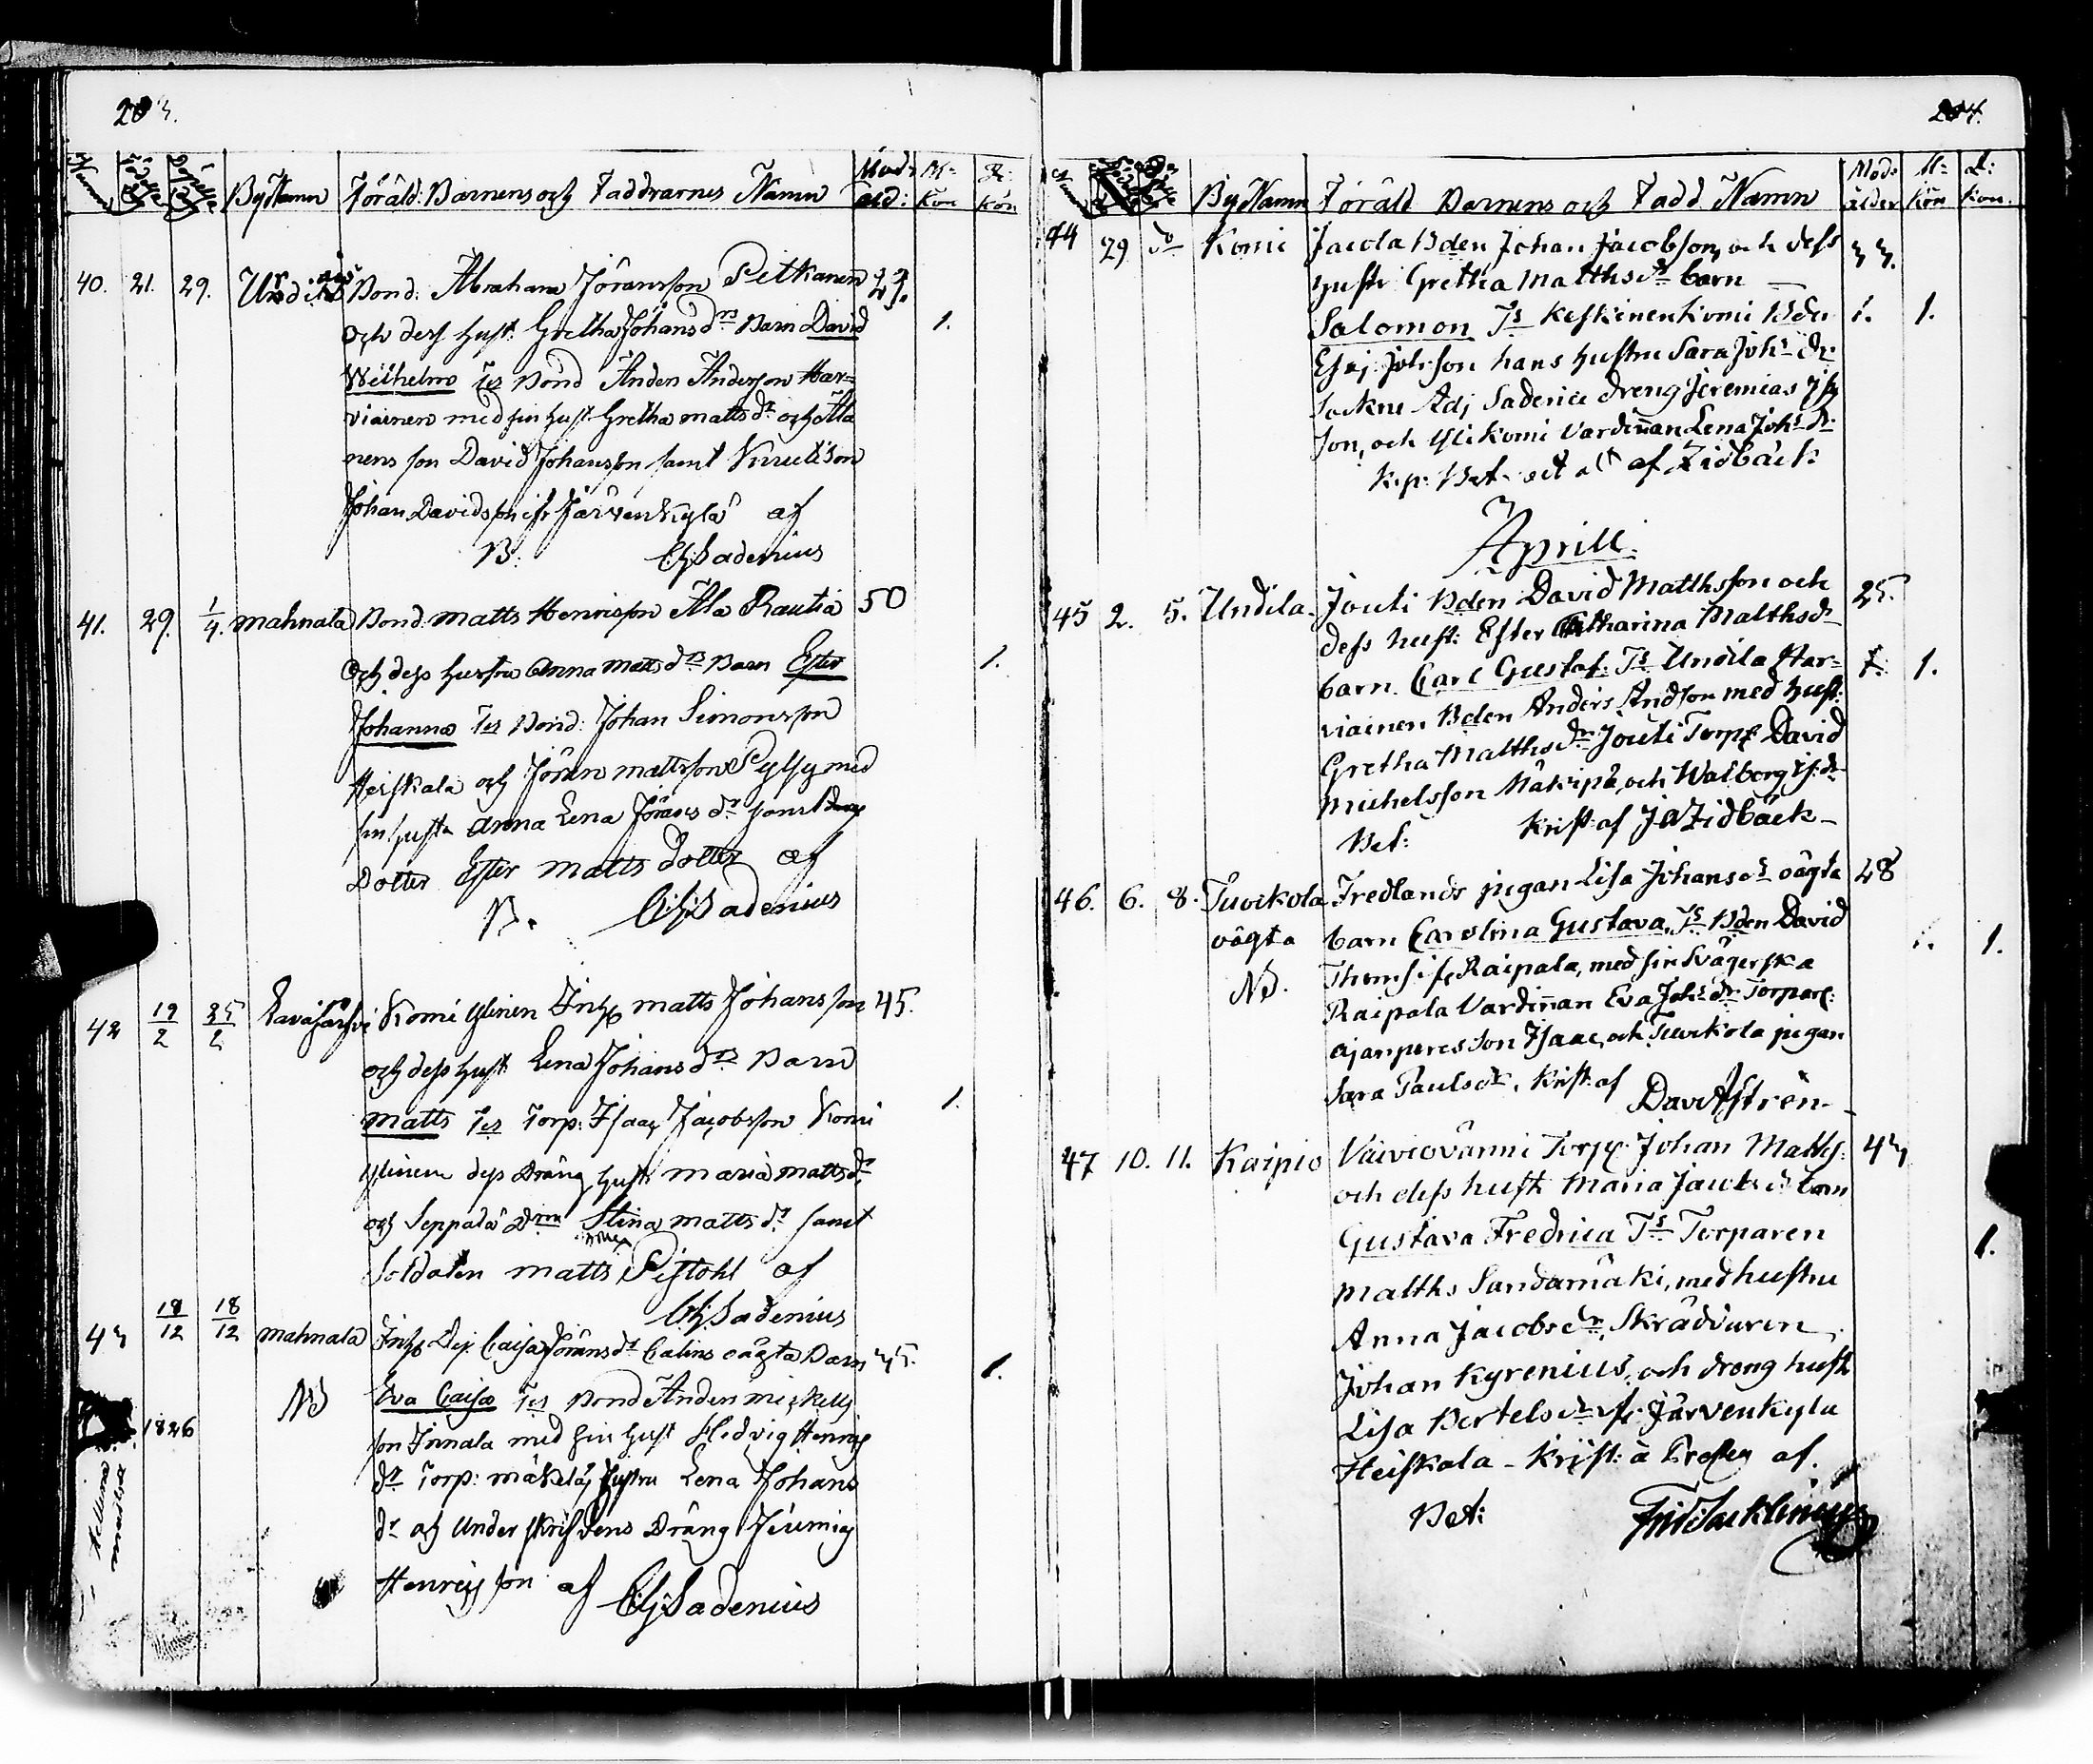 203.
Numm Födelse Döpelse By Namn Föräld: Barnens och Faddrarnes Namn Mod: åld: M: Kön Q: Kön
40. 21. 29. Bond: Abraham Jöransson Pitkänen
och dess hust: Gretha Johans dr Barn David 1.
Wilhelm Tes Bond Anders Andersson Har=
viainen med sin hust Gretha matts dr och Ala
nens son David Johansson samt
Johan Davidsson ifr Järvenkylä af
B. Sadenius
41. 29. 1/4. mahnala Bond: matts Henriksson Ala Rautia 50
och dess hustru Anna matts drs Barn Ester 1.
Johanna Tes Bond: Johan Simonsson
Heiskala och Jöran mattsson Pylsy med
sin hustr Anna Lena Jörans dr samt
Dotter Ester matts dotter af
B. Sadenius
42 19/2 25/2 Lavajärvi Komi Ylinen Inhs matts Johansson 45.
och dess hust Lena Johans drs Barn
matts Tes Torp: Isaac Jacobsson Komi 1.
Ylinen dess Dräng hustr maria matts dr
och Seppälä Stina matts dr samt
Soldaten matts Pistohl af
Sadenius
43 18/12 18/12 mahnala Inhs Caisa Jörans dr Calins oägta Barn 35.
NB Eva Caisa Tes Bond Anders mickels 1.
1826 son Innala med sin hust Hedvig Henriks
dr Torp: mäkelä hustru Lena Johans
dr och underskrifvens Dräng Jeremias
Henricsson af Sadenius
204.
By Namn Föräld Barnens och Fadd. Namn Mod: ålder M: Kön Q: Kön
44 29 do Komi Jacola Bden Johan Jacobson och dess 33.
hustr Gretha Matths dr barn
Salomon Ts Keskinenkomi Bden 1. 1.
Johsson hans hustru Sara Johs dr
Sockne Adj Sadenii dreng Jeremias
son, och Ylikomi Värdinnan Lena Johs dr
af Zidbäck
Aprill.
45 2. 5. Undila Jouti Bden David Matthsson och 25.
dess hust: Ester Catharina Matthsdr
barn. Carl Gustaf. Ts Undila Har= 1. 1.
viainen Bden Anders Andson med hust.
Gretha Matths dr Jouti Torps David
Michelsson Mäkipä, och Walborg
Bet: Krist af J A Zidbäck
46. 6. 8. Tuvikola Fredlands pigan Lisa Johans dr oägta 28
oägta barn Carolina Gustava, Ts Bden David 1.
NB. Raipala, med sin Svägerska
Raipala Vardinnan Eva Johs dr Torpare
Ajanperes son Isaac, och Tuvikola pigan
Sara Pauls dr, Krist af
Dav Aström
47 10. 11. Kaipio Torpr Johan Matths: 43
och dess hustr Maria Jacobs dr barn
Gustava Fredrica Ts Torparen 1.
Matths Sandamäki, med hustru
Anna Jacobs dr, Skräddaren
Johan Kyrenius, och dreng hustr
Lisa Bertels dr ifr Järvenkylä
Heiskala - Krist: à af.
Bet: